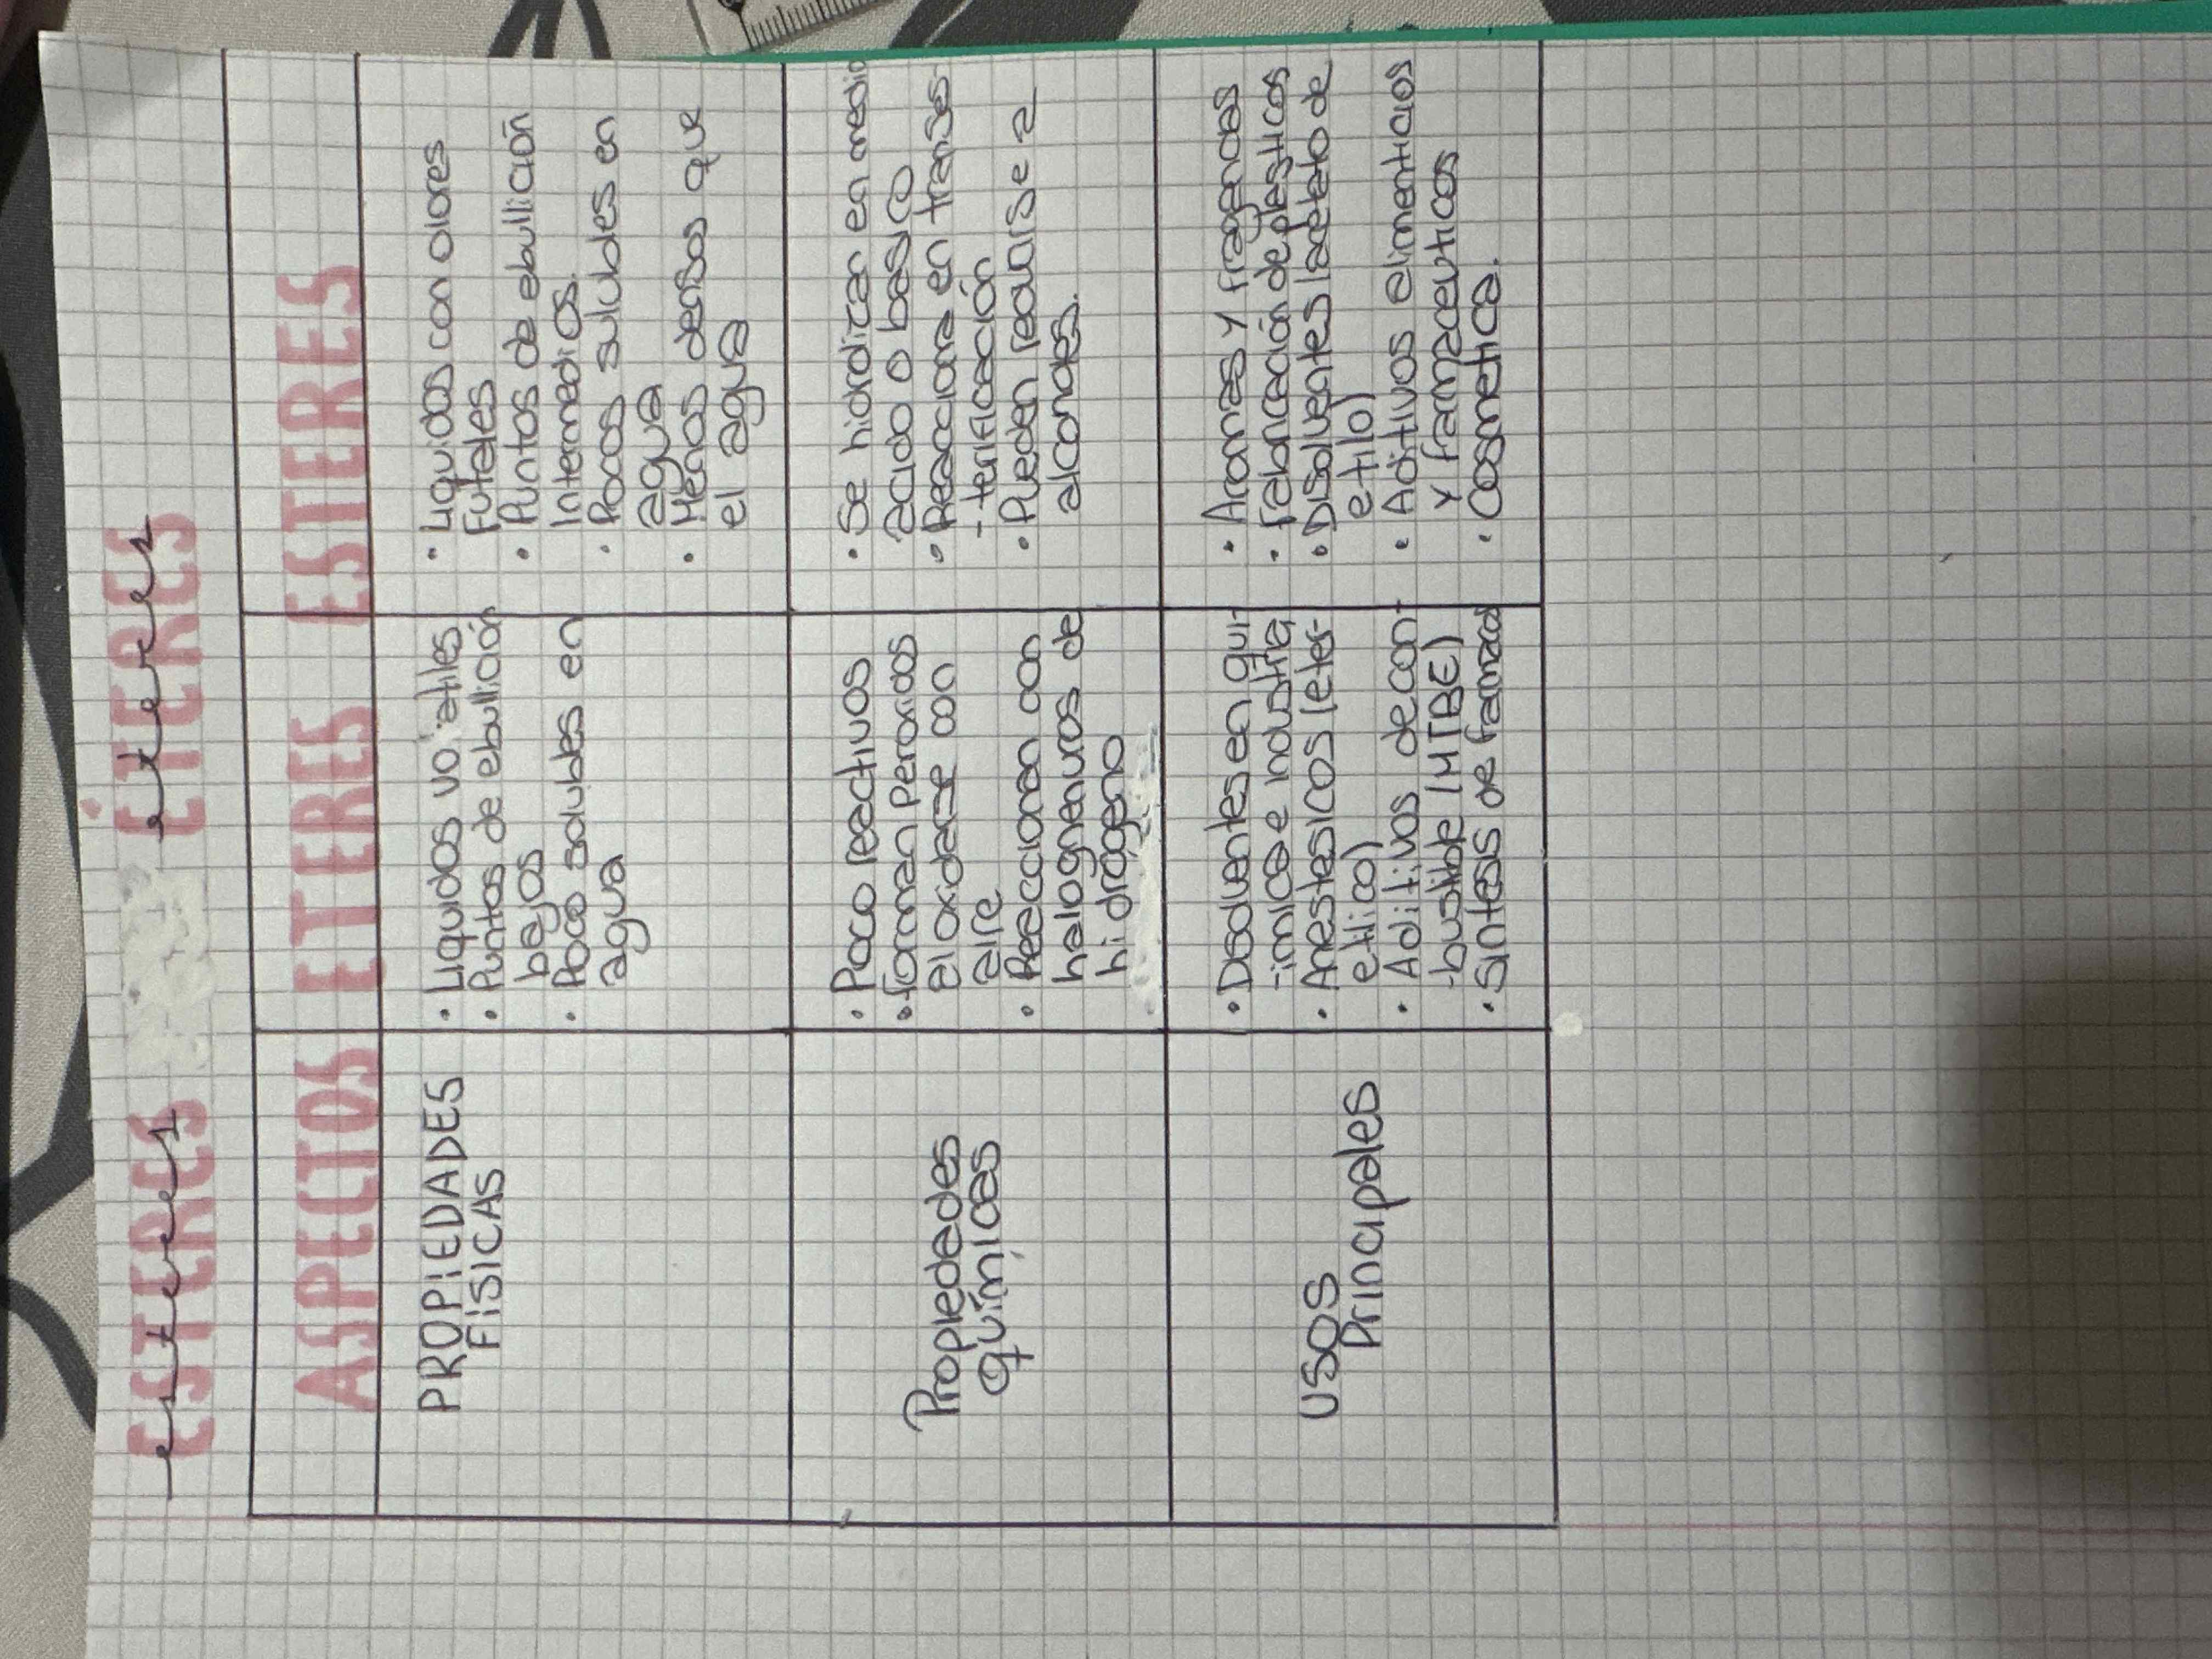 ESTERES ÉTERES
esteres eteres
ASPECTOS ETERES ESTERES
PROPIEDADES
FISICAS
• Liquidos volatiles
• Puntos de ebullición
bajos
• Poco solubles en
agua
• Liquidos con olores
Futales
• Puntos de ebullición
Intermedios.
• Pocos solubles en
agua
• Menos densos que
el agua
Propiedades
químicas
• Poco reactivos
• forman peroxidos
al oxidarse con
aire
• Reaccionan con
halogneruros de
hidrógeno
• Se hidrolizan en medio
acido o basico
• Reacciona en transes-
-terificación
• Pueden reducirse a
alcoholes.
USOS
Principales
• Desolventes en quí-
-imica e industria
• Anestesicos (eter-
etilico)
• Aditivos de com-
-bustible (MTBE)
• sintesis de farmacos
• Aromas y fragencias
• Fabricación de plasticos
• Disolventes (acetato de
etilo)
• Aditivos alimenticios
y farmaceuticos
• Cosmetica.